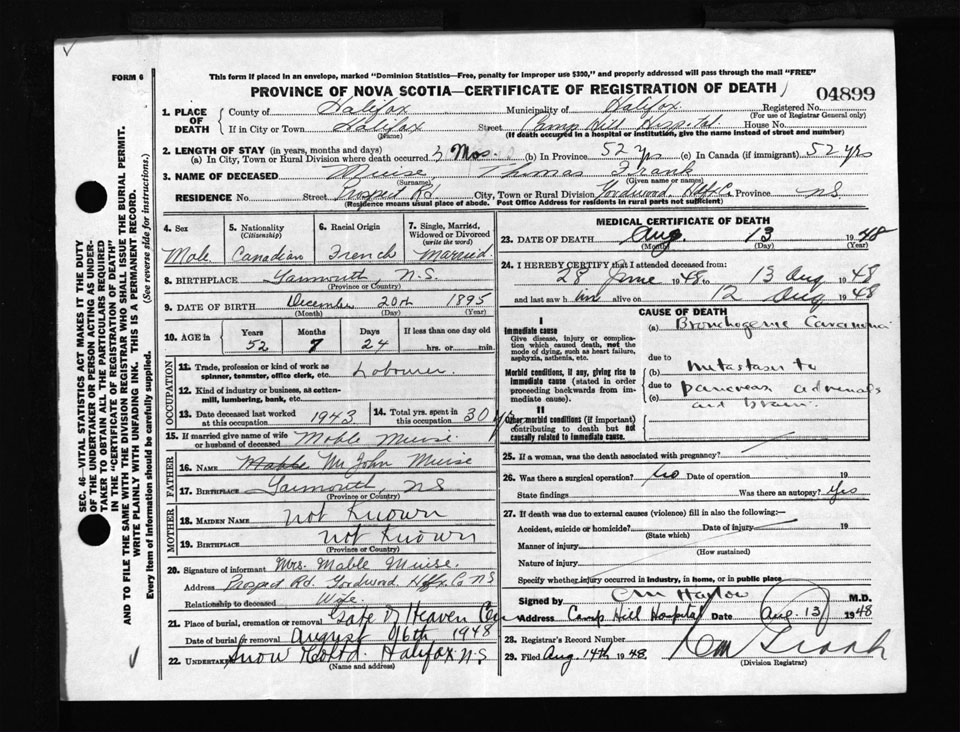 FORM 6
This form if placed in an envelope, marked "Dominion Statistics—Free, penalty for improper use $300," and properly addressed will pass through the mail "FREE"
PROVINCE OF NOVA SCOTIA—CERTIFICATE OF REGISTRATION OF DEATH
04899
1. PLACE OF DEATH
County of Halifax Municipality of Halifax Registered No.
(For use of Registrar General only)
If in City or Town Halifax Street Camp Hill Hospital House No.
(Name) (If death occurred in a hospital or institution, give the name instead of street and number)
2. LENGTH OF STAY (in years, months and days)
(a) In City, Town or Rural Division where death occurred 3 Mos. (b) In Province 52 yrs (c) In Canada (if immigrant) 52 yrs
3. NAME OF DECEASED Muise, Thomas Frank
(Surname) (Given name or names)
RESIDENCE No. Street Prospect Rd City, Town or Rural Division Goodwood Hfx Co. Province N.S.
(Residence means usual place of abode. Post Office Address for residents in rural parts not sufficient)
4. Sex
Male
5. Nationality
(Citizenship)
Canadian
6. Racial Origin
French
7. Single, Married, Widowed or Divorced
(write the word)
Married.
8. BIRTHPLACE Yarmouth, N.S.
(Province or Country)
9. DATE OF BIRTH December 20th 1895
(Month) (Day) (Year)
10. AGE in
Years Months Days If less than one day old
52 7 24 hrs. or min.
OCCUPATION
11. Trade, profession or kind of work as spinner, teamster, office clerk, etc. Labourer.
12. Kind of industry or business, as cotton-mill, lumbering, bank, etc.
13. Date deceased last worked at this occupation 1943
14. Total yrs. spent in this occupation 30 yrs
15. If married give name of wife or husband of deceased Mable Muise.
FATHER
16. NAME Mable Mr John Muise
17. BIRTHPLACE Yarmouth, NS
(Province or Country)
MOTHER
18. MAIDEN NAME not Known
19. BIRTHPLACE not Known
(Province or Country)
20. Signature of informant Mrs. Mable Muise.
Address Prospect Rd. Goodwood Hfx. Co NS
Relationship to deceased Wife.
21. Place of burial, cremation or removal Gate Of Heaven Cem
Date of burial or removal August 16th, 1948
22. Undertaker Snow Co Ltd. Halifax N.S
(Name and address)
MEDICAL CERTIFICATE OF DEATH
23. DATE OF DEATH Aug. 13 1948
(Month) (Day) (Year)
24. I HEREBY CERTIFY that I attended deceased from:
28 June 1948 to 13 Aug 1948
and last saw him alive on 12 Aug 1948
CAUSE OF DEATH
I
Immediate cause
Give disease, injury or complication which caused death, not the mode of dying, such as heart failure, asphyxia, asthenia, etc.
(a) Bronchogenic Carcinoma
due to
Morbid conditions, if any, giving rise to immediate cause (stated in order proceeding backwards from immediate cause).
(b) metastases to
due to pancreas adrenals
(c) and brain.
II
Other morbid conditions (if important) contributing to death but not causally related to immediate cause.
25. If a woman, was the death associated with pregnancy?
26. Was there a surgical operation? No Date of operation 19
State findings Was there an autopsy? Yes
27. If death was due to external causes (violence) fill in also the following:—
Accident, suicide or homicide? Date of injury 19
(State which)
Manner of injury
(How sustained)
Nature of injury
Specify whether injury occurred in industry, in home, or in public place
Signed by M.D.
Address Camp Hill Hospital Date Aug. 13 1948
28. Registrar's Record Number
29. Filed Aug. 14th 1948.
(Division Registrar)
SEC. 46—VITAL STATISTICS ACT MAKES IT THE DUTY
OF THE UNDERTAKER OR PERSON ACTING AS UNDER-
TAKER TO OBTAIN ALL THE PARTICULARS REQUIRED
IN THE "CERTIFICATE OF REGISTRATION OF DEATH"
AND TO FILE THE SAME WITH THE DIVISION REGISTRAR WHO SHALL ISSUE THE BURIAL PERMIT.
WRITE PLAINLY WITH UNFADING INK. THIS IS A PERMANENT RECORD.
Every item of information should be carefully supplied. (See reverse side for instructions.)